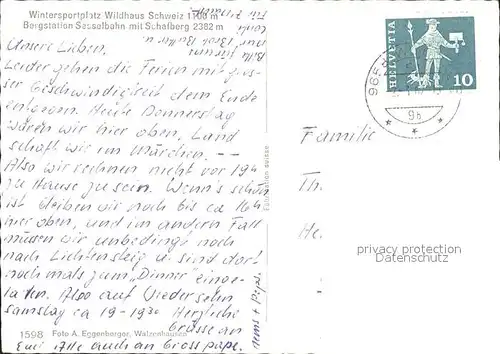 Wintersportplatz Wildhaus Schweiz 1100 m
Bergstation Sesselbahn mit Schafberg 2382 m
Unsere Lieben.
Leider gehen die Ferien mit gros-
ser Geschwindigkeit dem Ende
entgegen. Heute Donnerstag
waren wir hier oben, Land
schaft wie im Märchen. --
Also wir rechnen nicht vor 19 h
zu Hause zu sein. Wenn's schön
ist bleiben wir noch bis ca 16 h
hier oben, und im andern Fall
müssen wir unbedingt noch
nach Lichtensteig u. sind dort
nochmals zum "Dinner" einge-
laden. Also auf Wiedersehn
samstag ca 19-1930 Herzliche
Grüsse an
Euch Alle auch an Grosspapa.
1598 Foto A. Eggenberger, Walzenhausen
Edition suisse
HELVETIA
10
9b
Familie
Th.
He.
privacy protection
Datenschutz